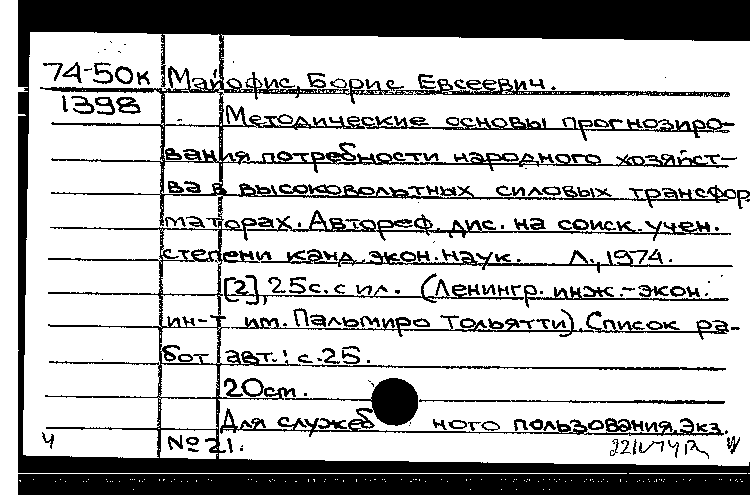 74-50к Майофис, Борис Евсеевич.
1398 Методические основы прогнозиро-
вания потребности народного хозяйст-
ва в высоковольтных силовых трансфор
маторах. Автореф. дис. на соиск. учен.
степени канд. экон. наук. Л., 1974.
[2], 25с. с ил. (Ленингр. инж.-экон.
ин-т им. Пальмиро Тольятти). Список ра-
бот авт.: с. 25.
20см.
Для служебного пользования. Экз.
Ч №21.